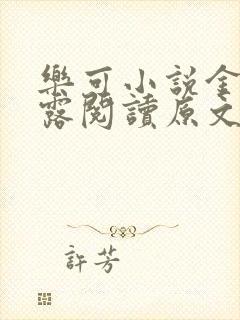 樂可小說金
露閱讀原文
許芳